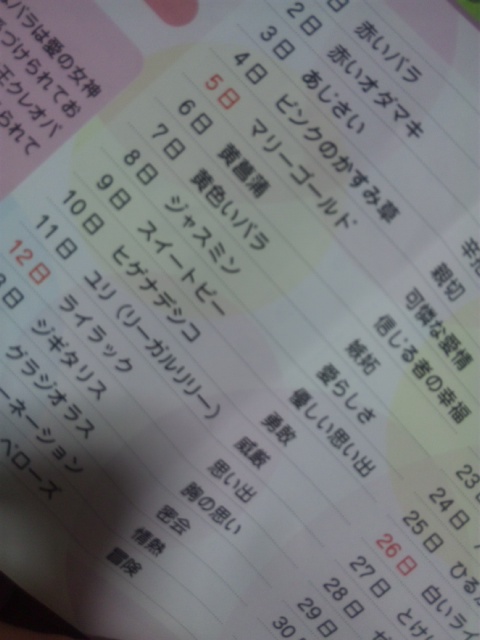 バラは愛の女神
づけられてお
王クレオパ
られて
日 赤いバラ
2日 赤いオダマキ
3日 あじさい
4日 ピンクのかすみ草 親切
5日 マリーゴールド 可憐な愛情
6日 黄菖蒲 信じる者の幸福
7日 黄色いバラ 嫉妬
8日 ジャスミン 愛らしさ
9日 スイートピー 優しい思い出
10日 ヒゲナデシコ 勇敢
11日 ユリ（リーガルリリー） 威厳
12日 ライラック 思い出
3日 ジギタリス 胸の思い
グラジオラス 密会
ーネーション 情熱
ベローズ 冒険
23
24日
25日 ひる
26日 白いライ
27日 とけ
28日
29日
30日